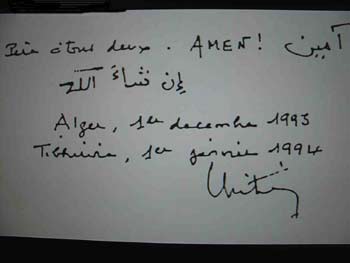 Père à tous deux. AMEN! آمين
إن شاءَ الله
Alger, 1er décembre 1993
Tibhirine, 1er janvier 1994